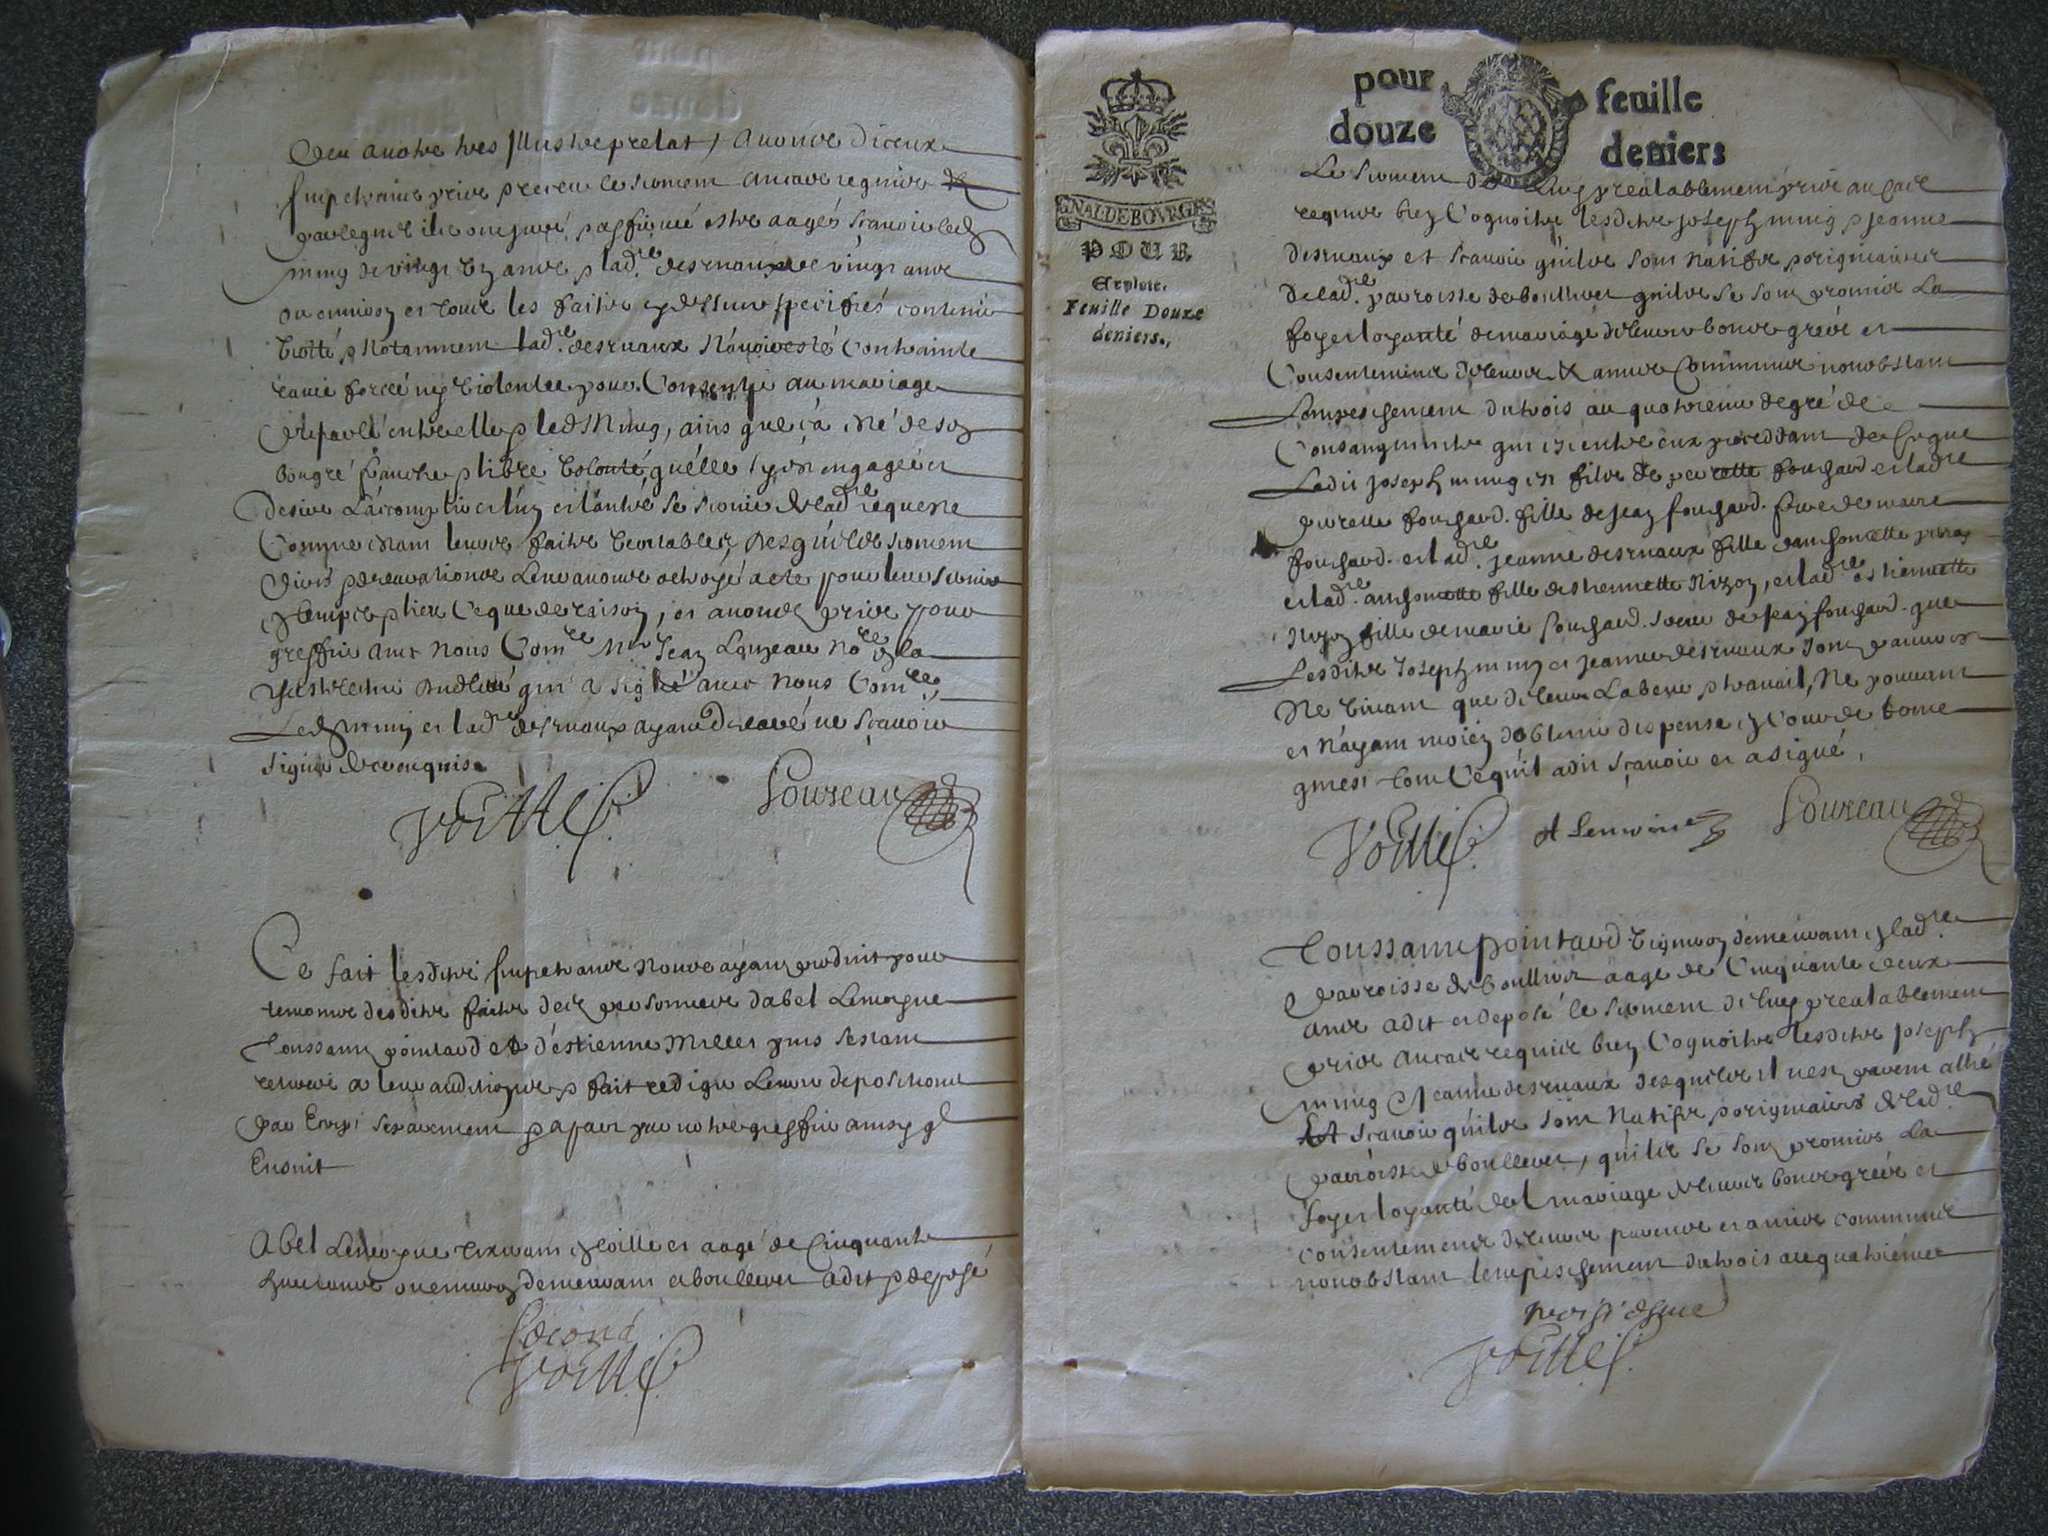 a notre tres Illustre prelat, avons diceux
Impetrans pris receu le serment au cas requis &
par lequel ils ont juré & affirmé estre aagés scavoir led.
ming de vingt ans & lad.e desruaux de vingt ans
ou environ et tous les faits cy dessus specifiés contenir
verité & notamment lad.e desruaux n'avoir esté contrainte
ravie forcée ny violentée pour consentir au mariage
entre elle & led Ming, ains que ça esté de son
bongré franche & libre volonté, qu'elle s'y est engagée et
desire l'accomplir et luy et l'autre se servir de lad. requeste
Comme estant leurs faits veritables desquels serment
dires & declarations leur avons octroyé acte pour leur servir
en temps & lieu ce que de raison, et avons pris pour
greffier avec nous Com.re M.e Jean Louzeau no.re
qui a signé avec nous Com.re,
Led ming et lad.e desruaux ayant declaré ne scavoir
signer de ce enquis.
Voille Louzeau
Ce fait lesdits Impetrans nous ayant produit pour
temoins desdits faits des personnes d'abel Lemoyne
Toussaint pointard et d'estienne Millet puis
a leur auditions & fait rediger leurs depositions
par Ecrit separement & a part par notre greffier ainsy q'l
Ensuit
Abel Lemoyne et aagé de Cinquante
ans ou environ demeurant a boulleret a dit & deposé
Second
Voille
pour feuille
douze deniers
GNAL DE BOVRGES
POUR
Exploit.
Feuille Douze
deniers.
Le serment de luy prealablement pris au cas
requis bien Cognoitre lesdits joseph ming & jeanne
desruaux et scavoir qu'ils sont natifs & originaires
de lad.e parroisse de boulleret qu'ils se sont promis La
foy et loyauté de mariage de leurs bons grés et
Consentement de leurs & amis Communs nonobstant
Lempeschement du trois au quatrieme degré de
Consanguinité qui est entre eux procedant de ce que
Ledit joseph ming est fils de perrette fouchard et lad.e
perrette fouchard. fille de jean fouchard. frere de marie
fouchard. et lad.e jeanne desruaux fille d'anthoinette
et lad.e anthoinette fille d'estiennette Nizon, et lad.e estiennette
Nizon fille de marie fouchard. soeur de jean fouchard. que
Lesdits Joseph ming et jeanne desruaux sont pauvres
Ne vivant que de leur Labeur & travail, Ne pouvant
et n'ayant moien d'obtenir dispense en Cour de Rome
qui est tout Ce qu'il a dit scavoir et a signé,
Voille A Lemoine Louzeau
Toussaint pointard vigneron demeurant en lad.e
parroisse de boulleret aagé de Cinquante deux
ans a dit et deposé le serment de luy prealablement
pris au cas requis bien Cognoitre lesdits joseph
ming & jeanne desruaux desquels il n'est parent allié
Et scavoir qu'ils sont natifs & originaires de lad.e
parroisse de boulleret, qu'ils se sont promis La
foy et loyauté de mariage de leurs bons grés et
consentement de leurs parens et amis communs
nonobstant l'empeschement du trois au quatriéme
Voille